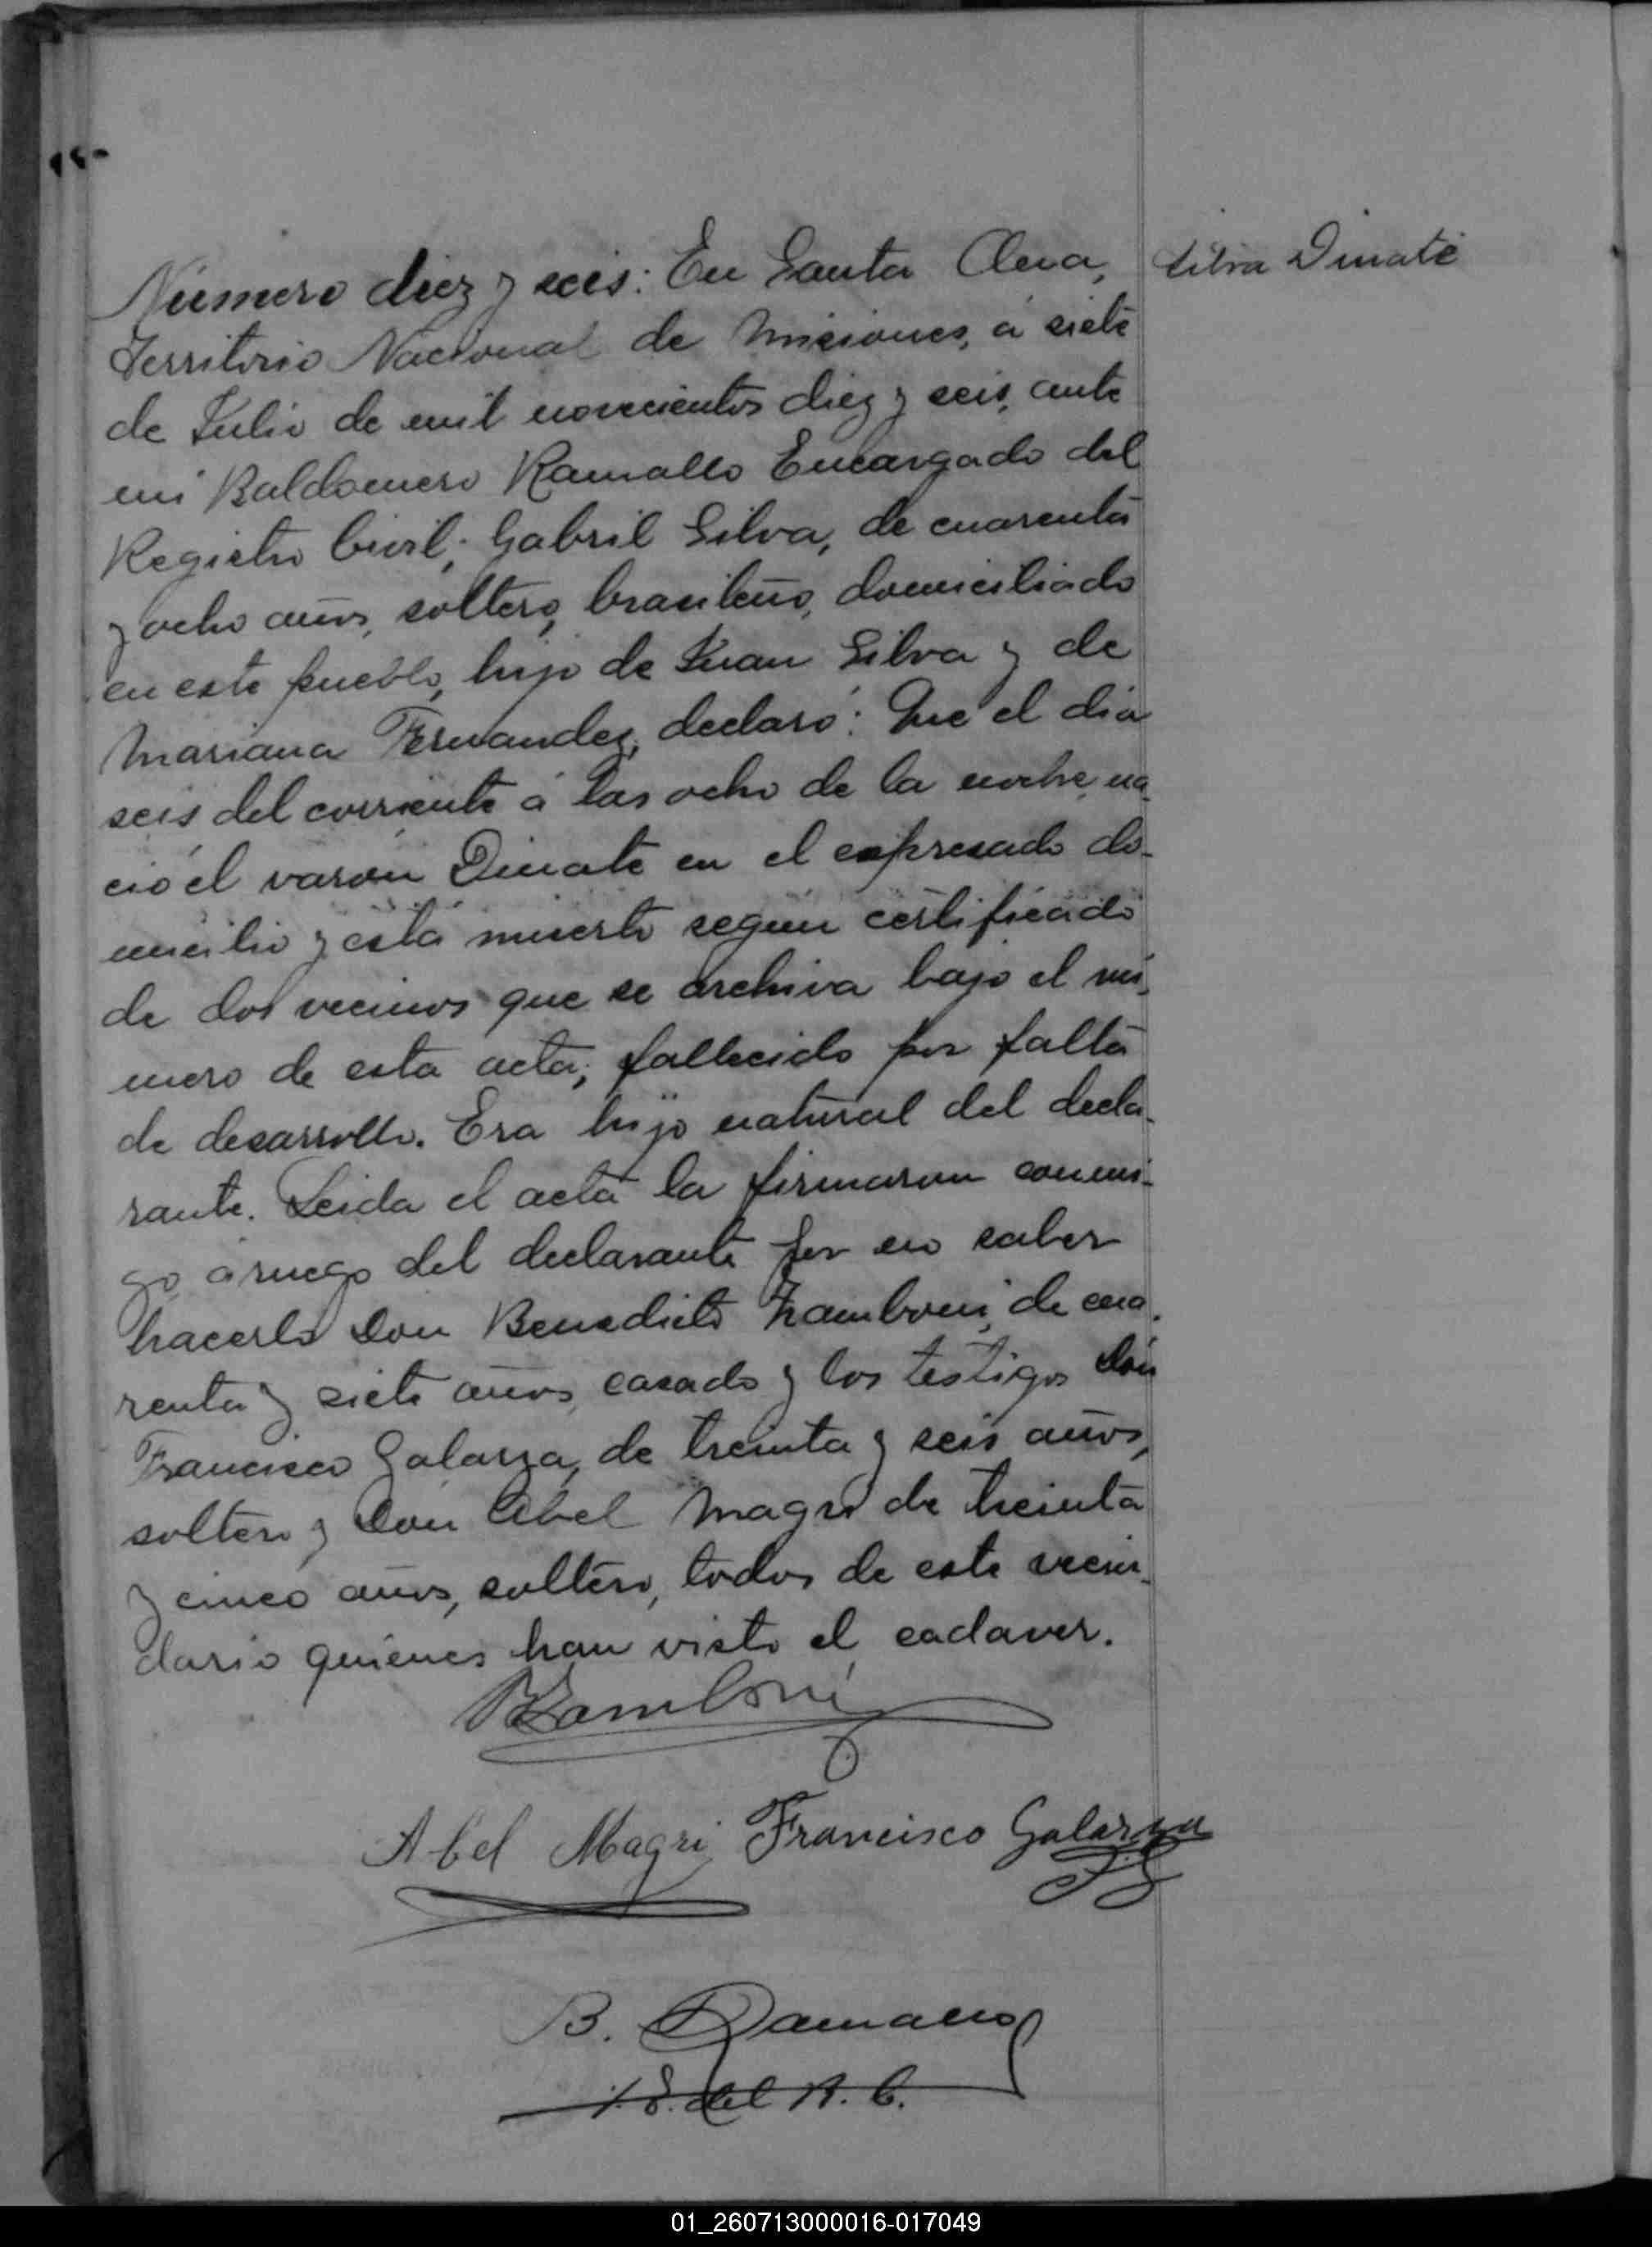 Número diez y seis: En Santa Ana, Silva Dinate
Territorio Nacional de Misiones, á siete
de Julio de mil novecientos diez y seis, ante
mi Baldomero Ramallo Encargado del
Registro Civil; Gabril Silva, de cuarenta
y ocho años, soltero, brasileño, domiciliado
en este pueblo, hijo de Juan Silva y de
Mariana Fernandez, declaró: Que el dia
seis del corriente á las ocho de la noche, na-
ció el varon Dinate en el expresado do-
micilio y está muerto segun certificado
de dos vecinos que se archiva bajo el nú-
mero de esta acta; fallecido por falta
de desarrollo. Era hijo natural del decla-
rante. Leida el acta la firmaron conmi-
go, á ruego del declarante por no saber
hacerlo Don Benedicto Zamboni, de cua-
renta y siete años, casado y los testigos Don
Francisco Galarza, de treinta y seis años,
soltero y Don Abel Magri de treinta
y cinco años, soltero, todos de este vecin-
dario quienes han visto el cadaver.
BZamboni
Abel Magri Francisco Galarza
B. Ramallo
del R. C.
01_260713000016-017049